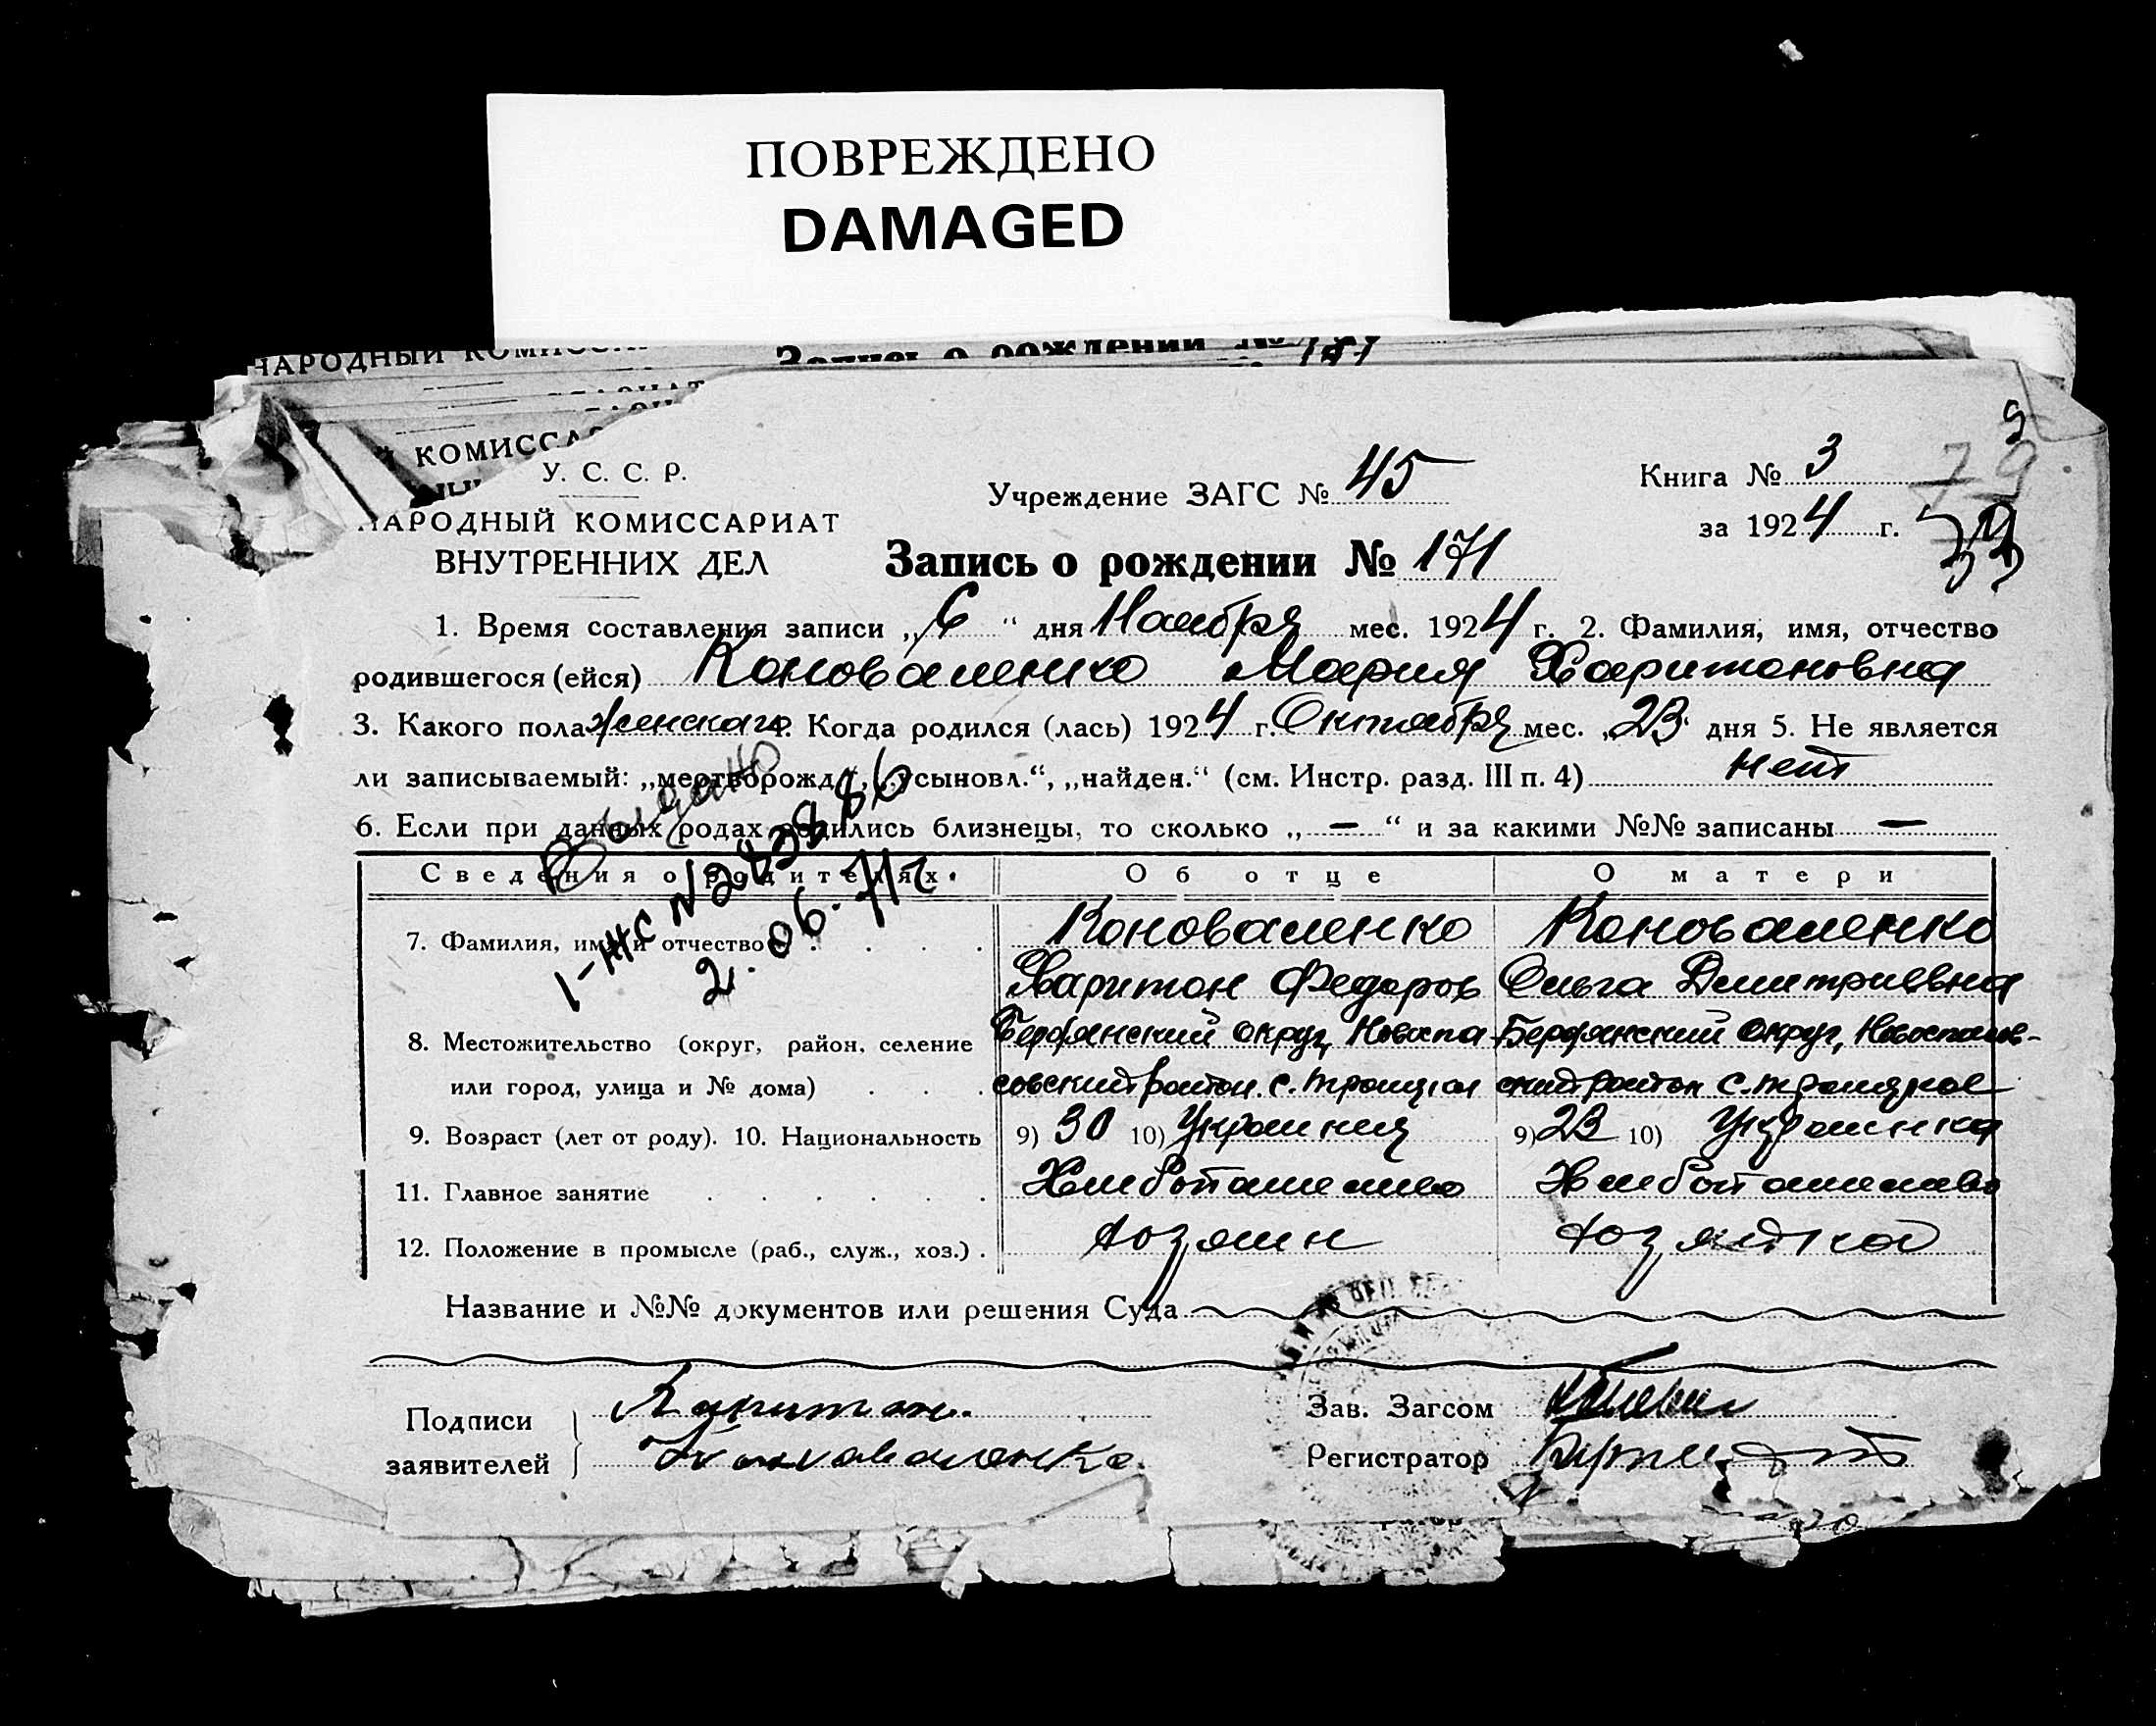 ПОВРЕЖДЕНО
DAMAGED
НАРОДНЫЙ
Запись о рождении 171
КОМИССА
У. С. С. Р.
НАРОДНЫЙ КОМИССАРИАТ
ВНУТРЕННИХ ДЕЛ
Учреждение ЗАГС № 45
Книга № 3
за 1924 г.
Запись о рождении № 171
1. Время составления записи „6“ дня Ноября мес. 1924 г. 2. Фамилия, имя, отчество
родившегося (ейся) Коноваленко Мария Харитоновна
3. Какого пола женскаго 4. Когда родился (лась) 1924 г. Октября мес. „23“ дня 5. Не является
ли записываемый: „мертворожд.“, „усыновл.“, „найден.“ (см. Инстр. разд. III п. 4) нет
6. Если при данных родах родились близнецы, то сколько „ — “ и за какими №№ записаны —
Выдано
1-ЖС №
2.06.71г
Сведения о родителях. Об отце О матери
7. Фамилия, имя и отчество Коноваленко Коноваленко
Харитон Федоров Ольга Дмитриевна
8. Местожительство (округ, район, селение Бердянский округ, Новоспа- Бердянский округ, Новоспасов-
или город, улица и № дома) совский район с. Троицкое ский район с. Троицкое
9. Возраст (лет от роду). 10. Национальность 9) 30 10) Украинец 9) 23 10) Украинка
11. Главное занятие Хлебопашество Хлебопашество
12. Положение в промысле (раб., служ., хоз.) Хозяин Хозяйка
Название и №№ документов или решения Суда
Подписи заявителей Харитон
Коноваленко.
Зав. Загсом
Регистратор